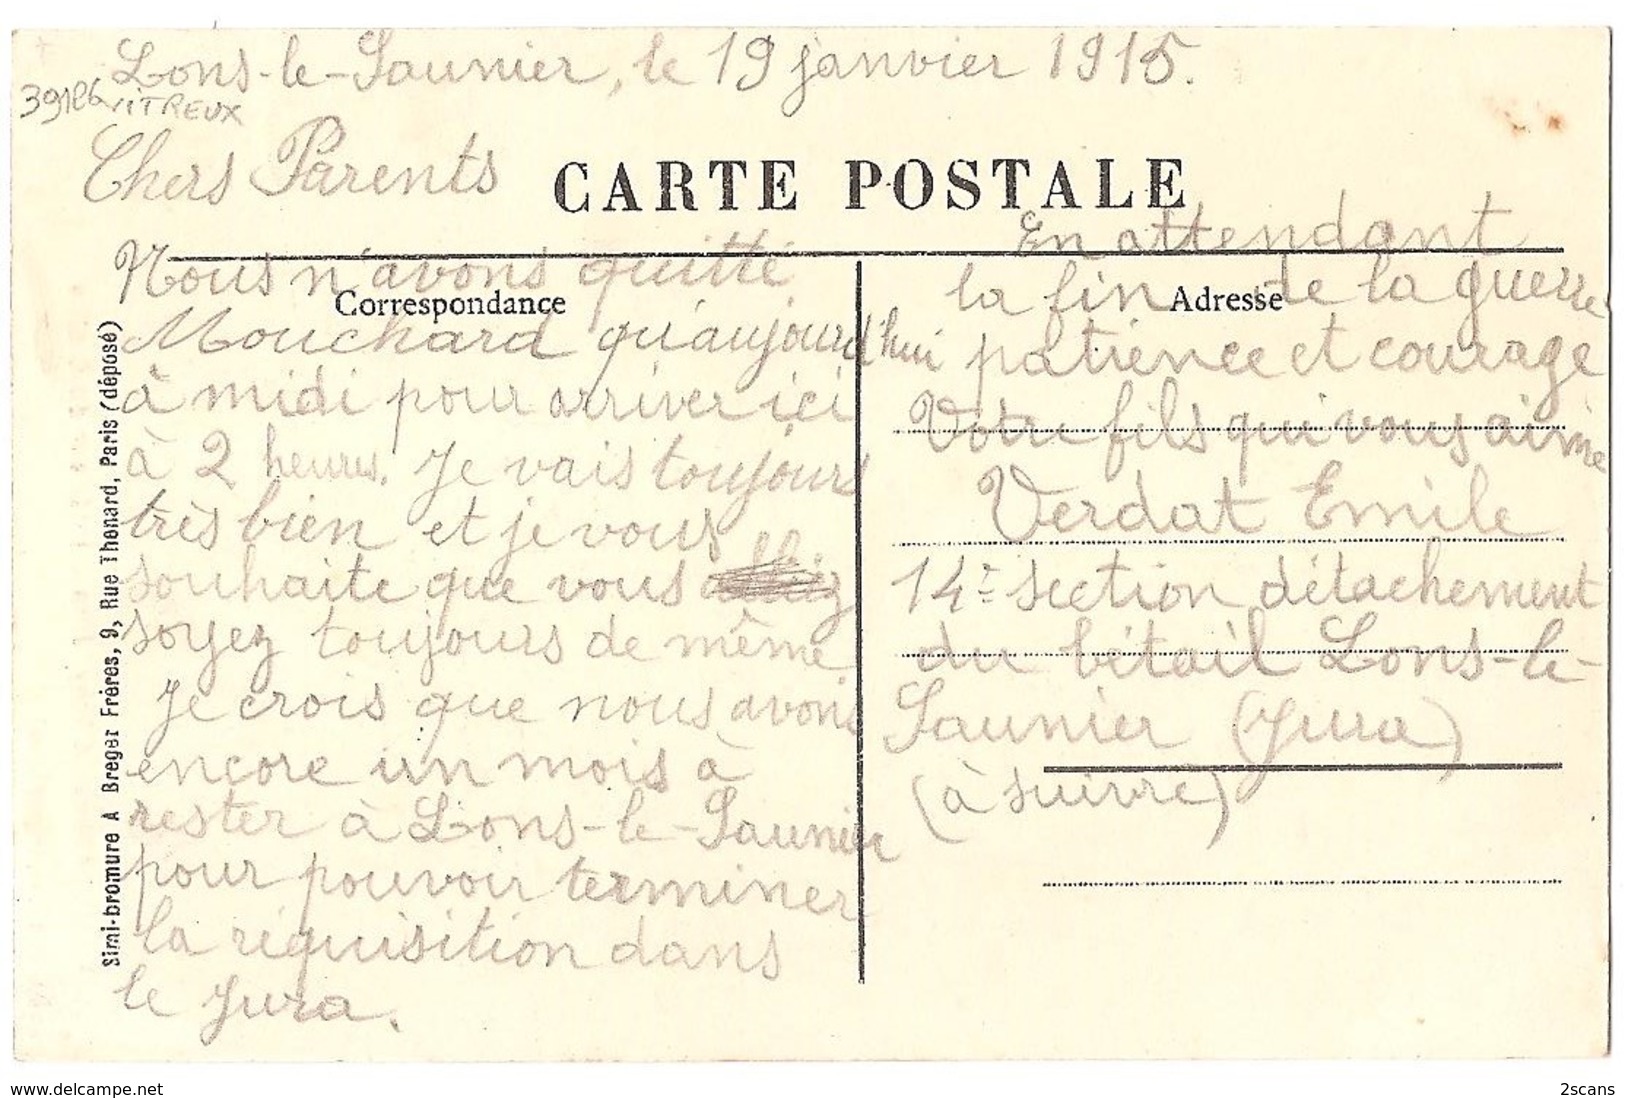 Lons-le-Saunier, le 19 janvier 1915.
VITREUX
Chers Parents
CARTE POSTALE
Nous n'avons quitté
Correspondance
Mouchard qu'aujourd'hui
à midi pour arriver ici
à 2 heures. Je vais toujours
très bien et je vous
souhaite que vous
soyez toujours de même
Je crois que nous avons
encore un mois à
rester à Lons-le-Saunier
pour pouvoir terminer
la réquisition dans
le Jura.
En attendant
la fin de la guerre
Adresse
patience et courage
Votre fils qui vous aime
Verdat Emile
14e section détachement
du bétail Lons-le-
Saunier (Jura)
(à suivre)
Simi-bromure A Breger Frères, 9, Rue Thenard, Paris (déposé)
www.delcampe.net
2scans